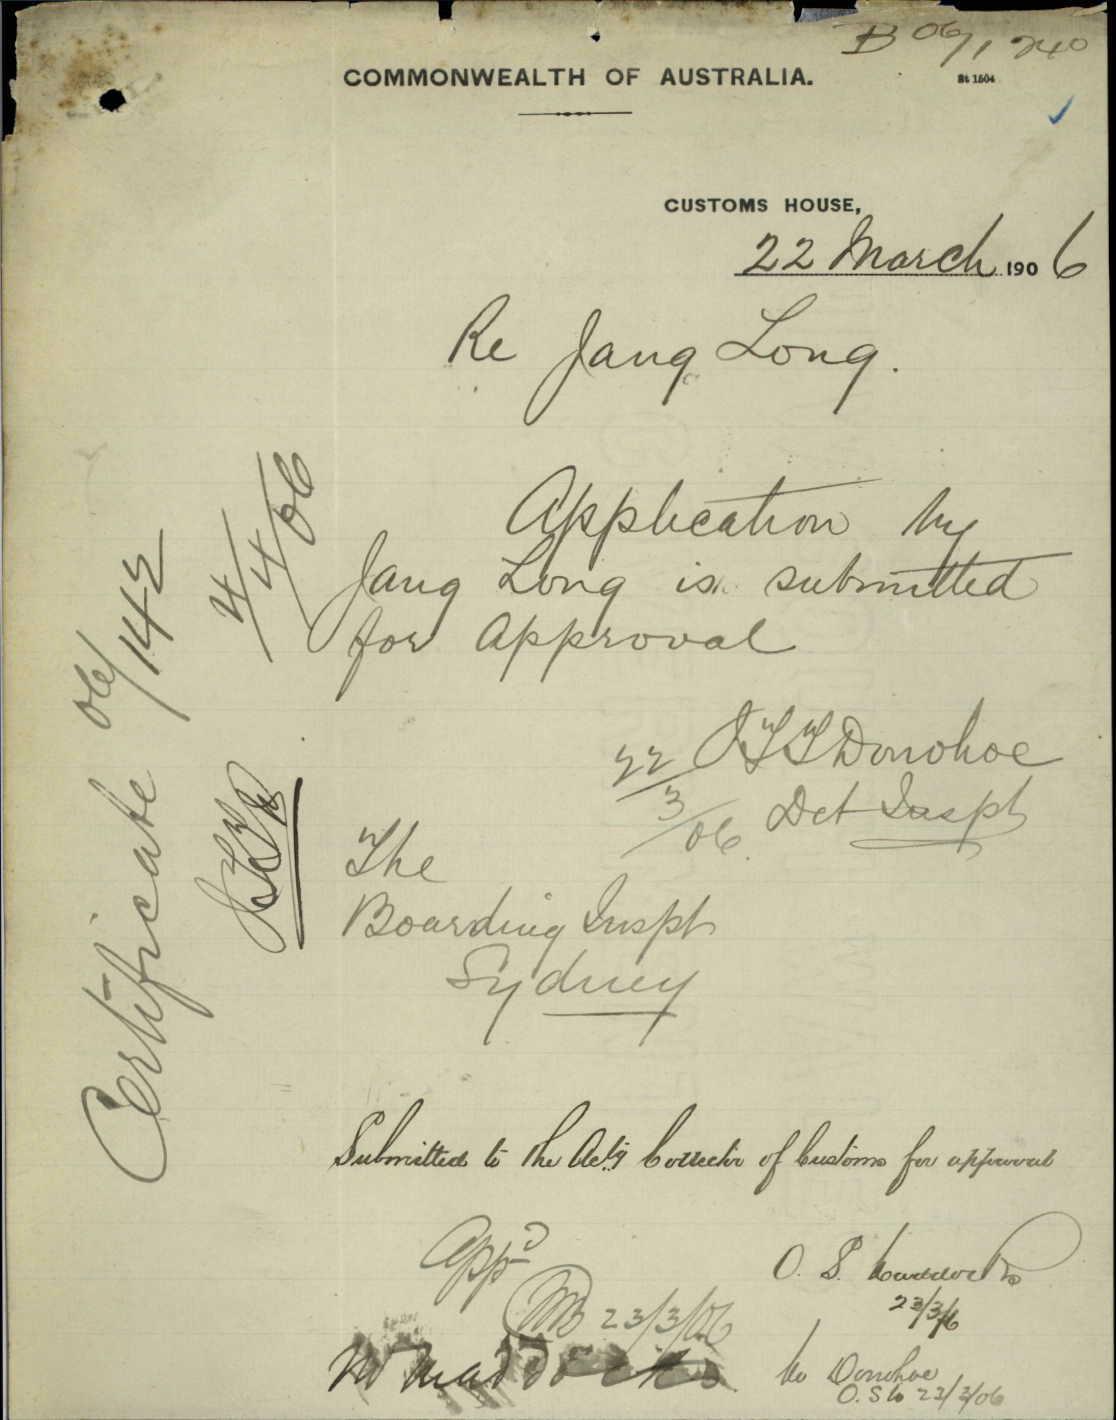 B 06/1240
COMMONWEALTH OF AUSTRALIA.
St 1504
CUSTOMS HOUSE,
22 March 1906
Re Jang Long.
Application by
Jang Long is submitted
for approval
JTT Donohoe
22/3/06 Det Inspt
The
Boarding Inspt
Sydney
Certificate 06/142
4/4/06
Submitted to the Actg Collector of Customs for approval
Appd
23/3/06
O. S.
23/3/6
Mr Maddocks
Mr Donohoe
23/3/06